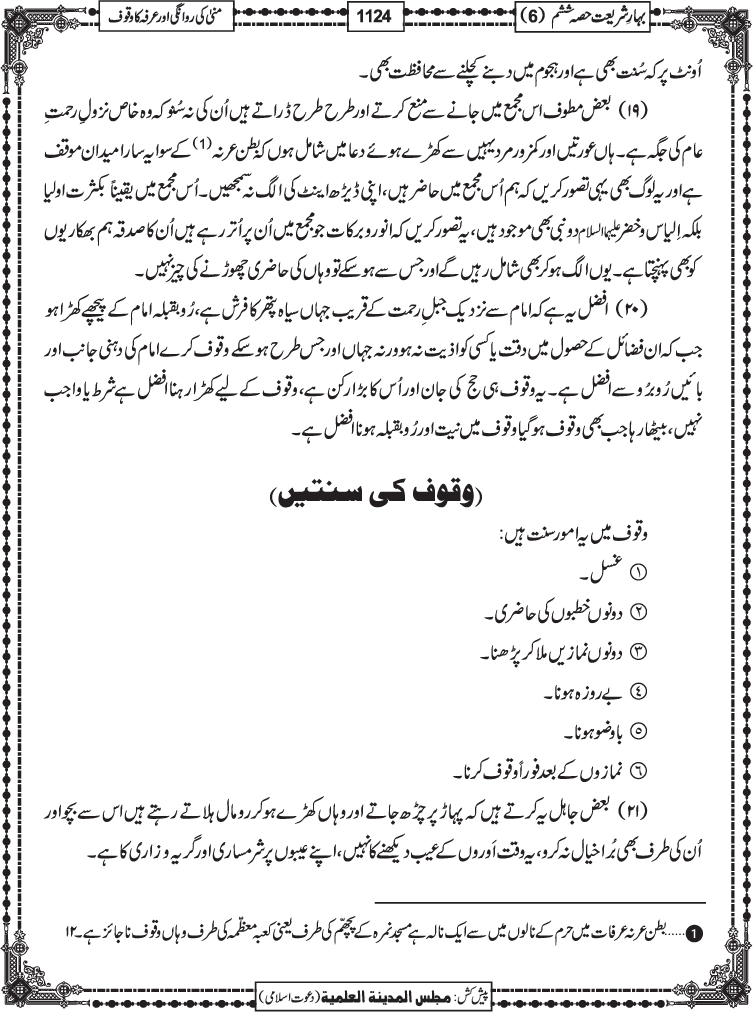 بہار شریعت حصہ ششم (6)
1124
منیٰ کی روانگی اور عرفہ کا وقوف
اُونٹ پر کہ سُنت بھی ہے اور ہجوم میں دبنے کچلنے سے محافظت بھی۔
(۱۹) بعض مطوف اس مجمع میں جانے سے منع کرتے اور طرح طرح ڈراتے ہیں اُن کی نہ سُنو کہ وہ خاص نزولِ رحمتِ
عام کی جگہ ہے۔ ہاں عورتیں اور کمزور مرد یہیں سے کھڑے ہوئے دعا میں شامل ہوں کہ بطن عرنہ (1) کے سوا یہ سارا میدان موقف
ہے اور یہ لوگ بھی یہی تصور کریں کہ ہم اُس مجمع میں حاضر ہیں، اپنی ڈیڑھ اینٹ کی الگ نہ سمجھیں۔ اُس مجمع میں یقیناً بکثرت اولیا
بلکہ اِلیاس و خضر علیہما السلام دو نبی بھی موجود ہیں، یہ تصور کریں کہ انوار و برکات جو مجمع میں اُن پر اُتر رہے ہیں اُن کا صدقہ ہم بھکاریوں
کو بھی پہنچتا ہے۔ یوں الگ ہو کر بھی شامل رہیں گے اور جس سے ہو سکے تو وہاں کی حاضری چھوڑنے کی چیز نہیں۔
(۲۰) افضل یہ ہے کہ امام سے نزدیک جبلِ رحمت کے قریب جہاں سیاہ پتھر کا فرش ہے، رُو بقبلہ امام کے پیچھے کھڑا ہو
جب کہ ان فضائل کے حصول میں دقت یا کسی کو اذیت نہ ہو ورنہ جہاں اور جس طرح ہو سکے وقوف کرے امام کی دہنی جانب اور
بائیں رُوبرُو سے افضل ہے۔ یہ وقوف ہی حج کی جان اور اُس کا بڑا رکن ہے، وقوف کے لیے کھڑا رہنا افضل ہے شرط یا واجب
نہیں، بیٹھا رہا جب بھی وقوف ہو گیا وقوف میں نیت اور رُو بقبلہ ہونا افضل ہے۔
(وقوف کی سنتیں)
وقوف میں یہ امور سنت ہیں:
① غسل۔
② دونوں خطبوں کی حاضری۔
③ دونوں نمازیں ملا کر پڑھنا۔
④ بے روزہ ہونا۔
⑤ باوضو ہونا۔
⑥ نمازوں کے بعد فوراً وقوف کرنا۔
(۲۱) بعض جاہل یہ کرتے ہیں کہ پہاڑ پر چڑھ جاتے اور وہاں کھڑے ہو کر رومال ہلاتے رہتے ہیں اس سے بچو اور
اُن کی طرف بھی بُرا خیال نہ کرو، یہ وقت اَوروں کے عیب دیکھنے کا نہیں، اپنے عیبوں پر شرمساری اور گریہ و زاری کا ہے۔
❶ ..... بطن عرنہ عرفات میں حرم کے نالوں میں سے ایک نالہ ہے مسجد نمرہ کے پچھّم کی طرف یعنی کعبہ معظّمہ کی طرف وہاں وقوف ناجائز ہے۔ ۱۲
پیش کش: مجلس المدینۃ العلمیۃ (دعوت اسلامی)